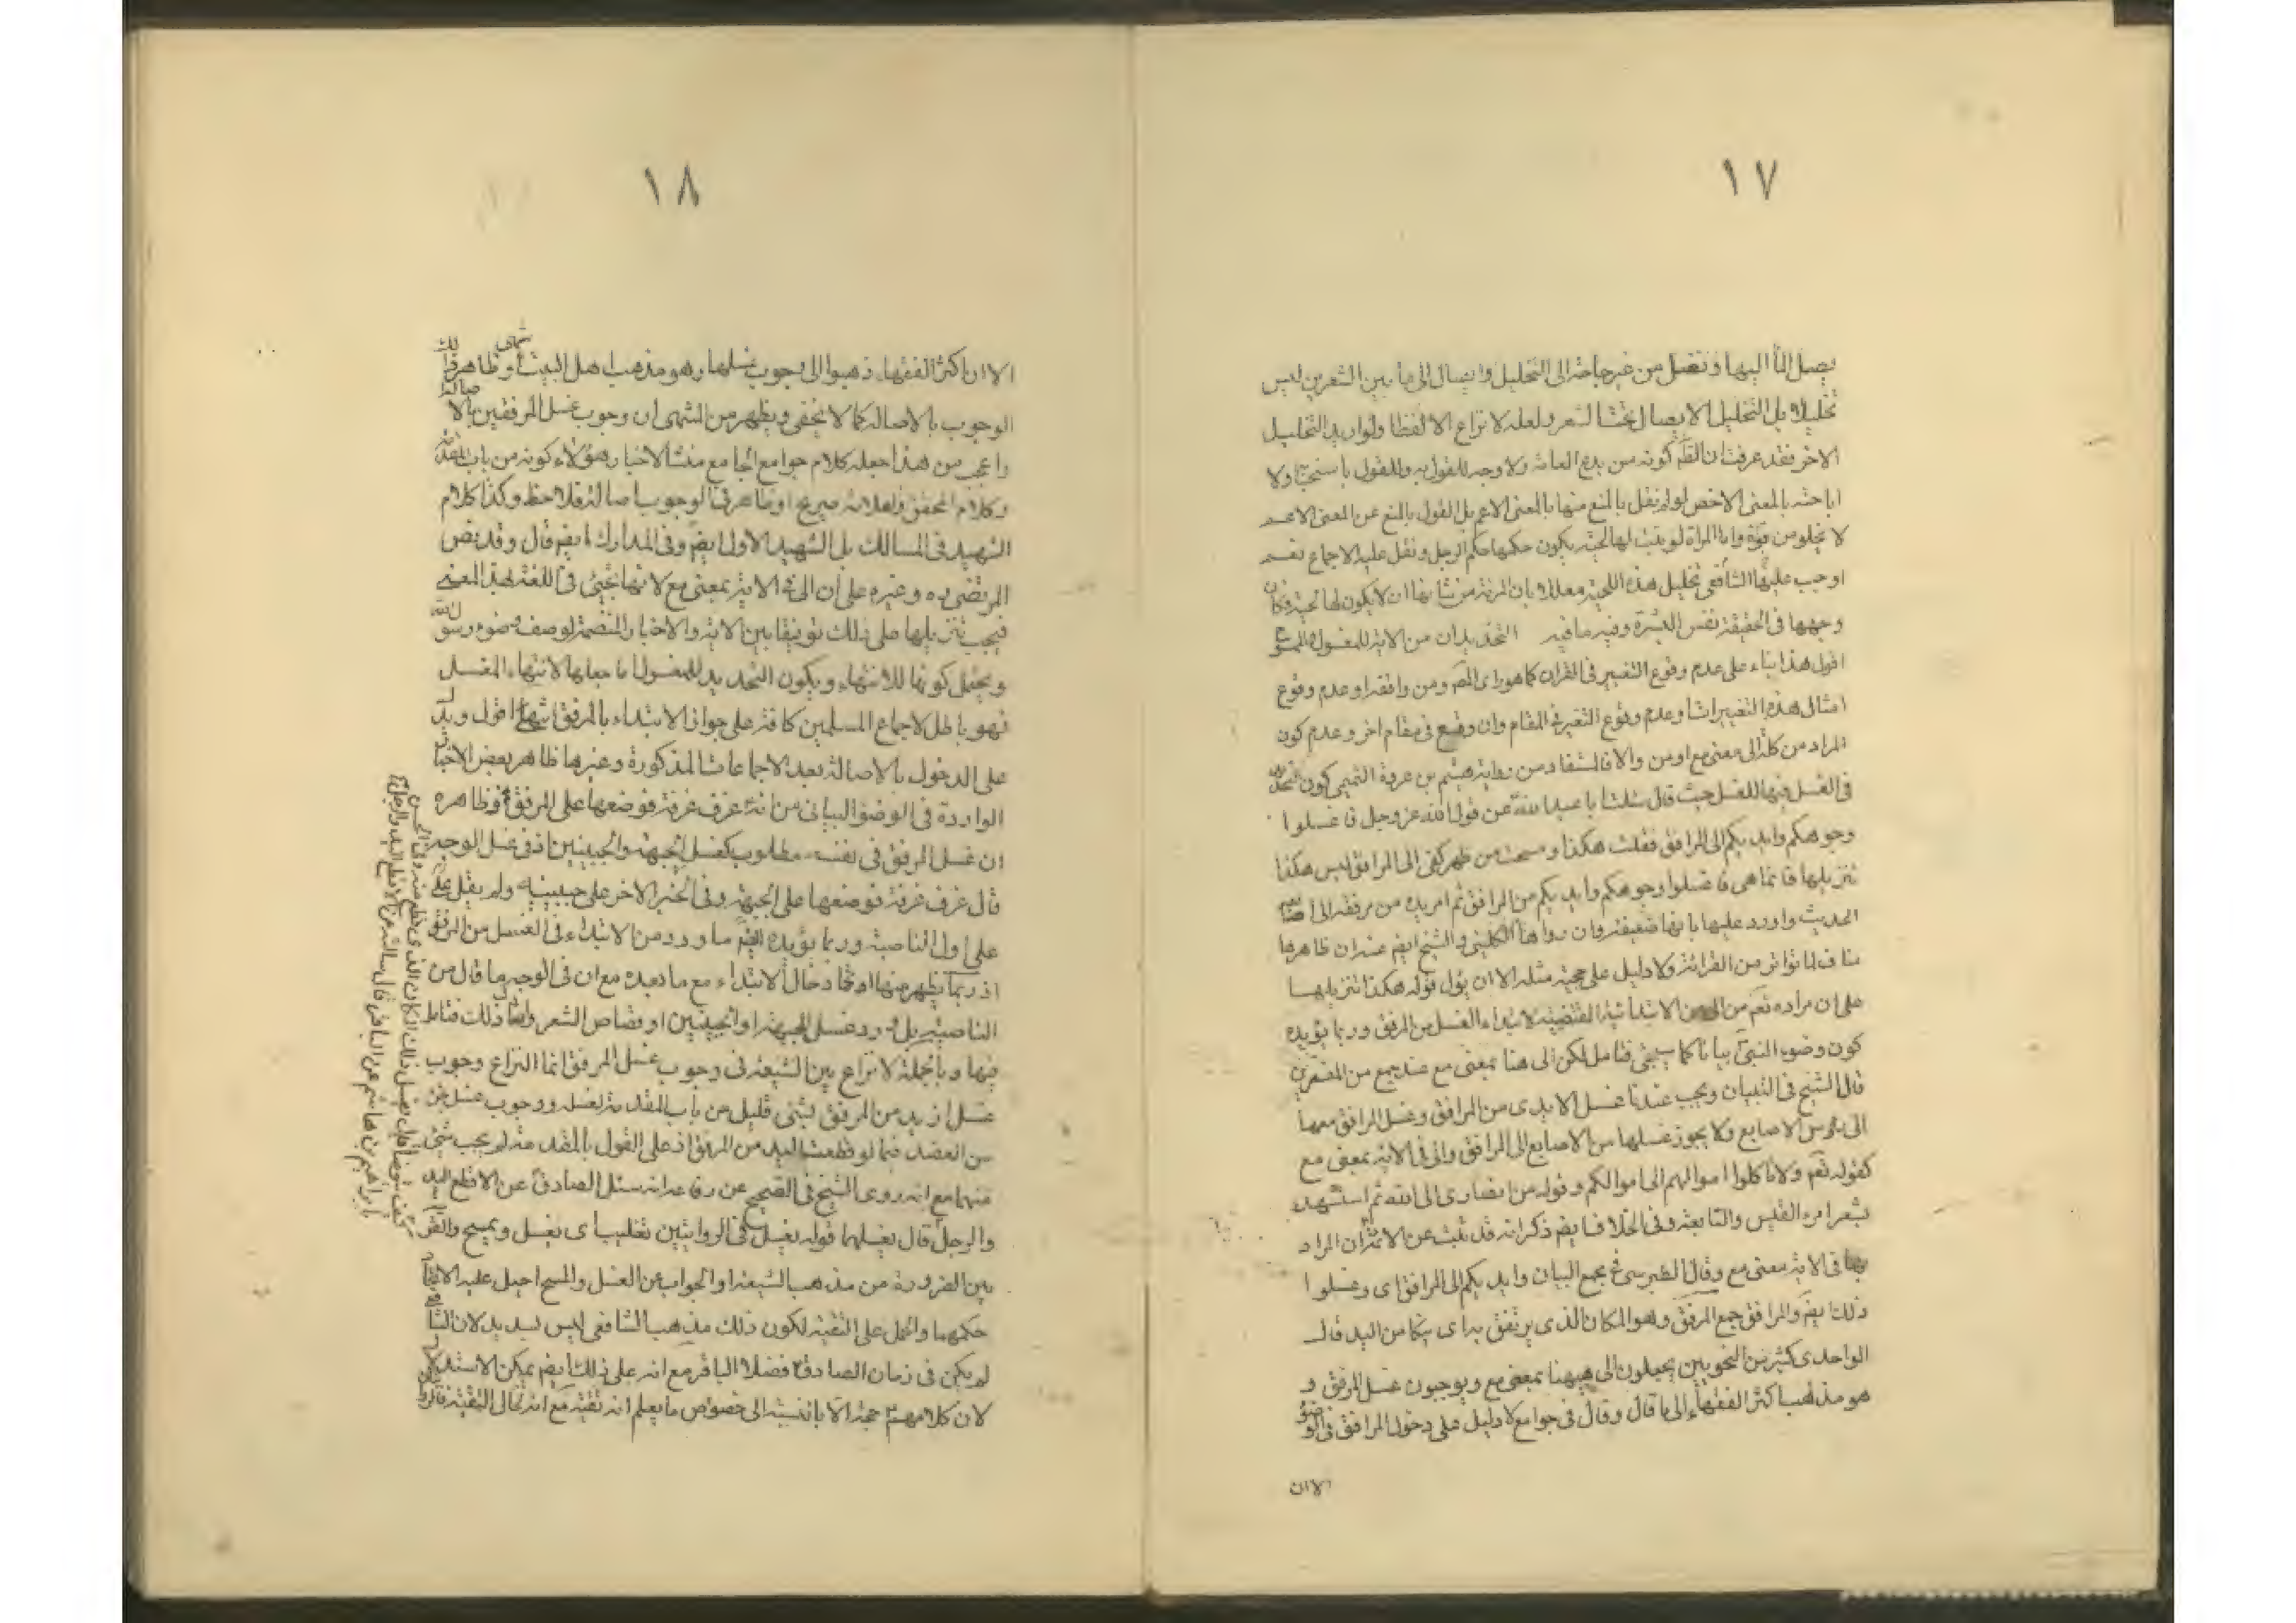 ١٧
يصل الماء اليها وتغسل من غير حاجة الى التخليل وايصال الى ما بين الشعرين ليس
تخليلا بل التخليل الايصال تحت الشعر ولعله لا نزاع الا لفظا ولو اريد التخليل
الاخر فقد عرفت ان الظ كونه من بدع العامة ولا وجه للقول به وللقول باستحبابه ولا
اباحته بالمعنى الاخص لو لم نقل بالمنع منها بالمعنى الاعم بل القول بالمنع عن المعنى الاعم
لا يخلو من قوة واما المراة لو نبت لها لحية يكون حكمها حكم الرجل ونقل عليه الاجماع نعم
اوجب عليها الشافعي تخليل هذه اللحية معللا بان المرئة من شانها ان لا يكون لها لحية فكان
وجهها في الحقيقة نفس البشرة وفيه ما فيه التحديدان من الاية للمغسول والممسوح
اقول هذا بناء على عدم وقوع التغيير في القران كما هو راى المص ومن وافقه او عدم وقوع
امثال هذه التغييرات او عدم وقوع التغير في المقام وان وقع في مقام اخر وعدم كون
المراد من كلمة الى معنى مع او من والا فالمستفاد من رواية هيثم بن عروة التميمي كون التحديد
في الغسل فيها للغسل حيث قال سئلت ابا عبد الله عن قول الله عز وجل فاغسلوا
وجوهكم وايديكم الى المرافق فقلت هكذا ومسحت من ظهر كفى الى المرافق ليس هكذا
تنزيلها فانما هى فاغسلوا وجوهكم وايديكم من المرافق ثم امر يده من مرفقه الى اصابعه
الحديث واورد عليها بانها ضعيفة وان رواها الكليني والشيخ ايضم عنه ان ظاهرها
مناف لما تواتر من القرائة ولا دليل على حجية مثله الا ان يؤل قوله هكذا تنزيلها
على ان مراده تعم من الى من الابتدائية المقتضية لابتداء الغسل من المرفق وربما يؤيده
كون وضوء النبي بيانا كما سيجئ فتامل لكن الى هنا بمعنى مع عند جمع من المفسرين
قال الشيخ في التبيان ويجب عندنا غسل الايدى من المرافق وغسل المرافق معها
الى رؤس الاصابع ولا يجوز غسلها من الاصابع الى المرافق والى في الاية بمعنى مع
كقوله تعم ولا تاكلوا اموالهم الى اموالكم وقوله من انصارى الى الله ثم استشهد
بشعر امرء القيس والنابغة وفي الخلاف ايضم ذكر انه قد ثبت عن الائمة ان المراد
بها في الاية معنى مع وقال الطبرسي في مجمع البيان وايديكم الى المرافق اى وغسلوا
ذلك ايضم والمرافق جمع المرفق وهو المكان الذى يرتفق به اى يتكا من اليد قال
الواحدى كثير من النحويين يجعلون الى هيهنا بمعنى مع ويوجبون غسل المرفق و
هو مذهب اكثر الفقهاء الى ما قال وقال في جوامع لا دليل على دخول المرافق في الوضوء
الا ان
١٨
الا ان اكثر الفقهاء ذهبوا الى وجوب غسلها وهو مذهب اهل البيت وظاهر ذلك
الوجوب بالاصالة كما لا يخفى ويظهر من المنتهى ان وجوب غسل المرفقين بالاصالة
واعجب من هذا جعله كلام جوامع الجامع منشأ لاختيار هؤلاء كونه من باب المقدمة
وكلام المحقق والعلامة صريح او ظاهر في الوجوب اصالة فلاحظ وكذا كلام
الشهيد في المسالك بل الشهيد الاول ايضم وفي المدارك ايضم قال وقد نص
المرتضى ره وغيره على ان الى في الاية بمعنى مع لانها تجيئ في اللغة لهذا المعنى
فيجب تنزيلها على ذلك توفيقا بين الاية والاخبار المتضمنة لوصف وضوء رسول الله
ويحتمل كونها للانتهاء ويكون التحديد للمغسول اما جعلها لانتهاء الغسل
فهو باطل لاجماع المسلمين كافة على جواز الابتداء بالمرفق انتهى اقول ويدل
على الدخول بالاصالة بعد الاجماعات المذكورة وغيرها ظاهر بعض الاخبار
الواردة في الوضوء البياني من انه غرف غرفة فوضعها على المرفق وظاهره
ان غسل المرفق في نفسه مطلوب كغسل الجبهة والجبينين اذ في غسل الوجه
قال غرف غرفة فوضعها على الجبهة وفي الخبر الاخر على جبينيه ولم يقل
على اول الناصية وربما يؤيده ايضم ما ورد من الابتداء في الغسل من المرفق
اذ ربما يظهر منها ادخال الابتداء مع ما بعده مع ان في الوجه ما قال من
الناصية بل ورد غسل الجبهة او الجبينين او قصاص الشعر وامثال ذلك فتامل
فيها وبالجملة لا نزاع بين الشيعة في وجوب غسل المرفق انما النزاع وجوب
غسل ازيد من المرفق بشئ قليل من باب المقدمة لغسله ووجوب غسل جزء
من العضد فيما لو قطعت اليد من المرفق اذ على القول بالمقدمة لم يجب شئ
منهما مع انه روى الشيخ في الصحيح عن رفاعة انه سئل الصادق عن الاقطع اليد
والرجل قال يغسلهما قوله يغسل في الروايتين تغليب اى يغسل ويمسح والفرق
بين الضرورة من مذهب الشيعة او الجواب عن الغسل والمسح احيل عليه
حكمهما والحمل على التقية لكون ذلك مذهب الشافعي ليس بسديد لان الشافعي
لم يكن في زمان الصادق فضلا الباقر مع انه على ذلك ايضم يمكن الاستدلال
لان كلامهم حجة الا بالنسبة الى خصوص ما يعلم انه تقية مع انه تعالى التقية قالوا